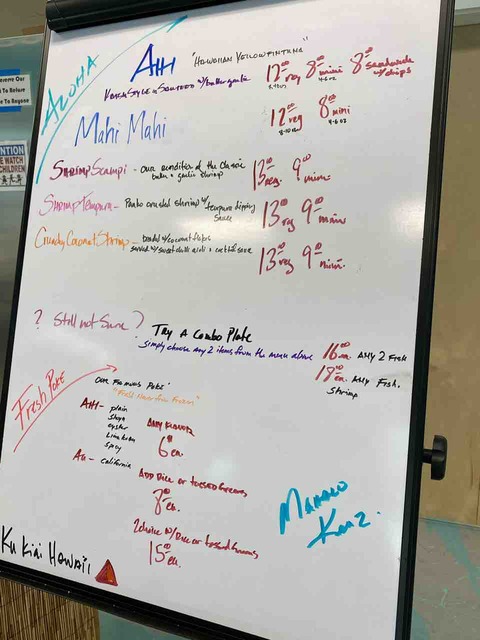 ALOHA
AHI "HAWAIIAN YELLOWFIN TUNA"
KATSU STYLE or SAUTEED w/ butter garlic 12⁰⁰ reg 8⁰⁰ mini 8⁰⁰ sandwich w/ chips
8-10oz 4-6 oz
Mahi Mahi 12⁰⁰ reg 8⁰⁰ mini
8-10 oz 4-6 oz
Shrimp Scampi - Our rendition of the Classic
butter & garlic shrimp 13⁰⁰ reg. 9⁰⁰ mini
Shrimp Tempura - Panko crusted shrimp w/ tempura dipping
sauce 13⁰⁰ reg 9⁰⁰ mini
Crunchy Coconut Shrimp - breaded w/ coconut flakes
served w/ sweet chili aioli & cocktail sauce 13⁰⁰ reg 9⁰⁰ mini
? Still not Sure? Try A Combo Plate
Simply choose any 2 items from the menu above 16⁰⁰ ea. ANY 2 FISH
18⁰⁰ ea. ANY Fish.
Shrimp
Fresh Poke
OUR FAMOUS POKE'
"Fresh Never ever Frozen"
AHI - plain
shoyu
oyster
Limu koho
spicy
ANY FLAVOR
6⁰⁰ ea.
AKU - California
ADD Rice or tossed Greens
8⁰⁰ ea.
2 choice w/ Rice or tossed Greens
15⁰⁰ ea.
MAHALO
KANZ.
Ku Kiai Hawaii